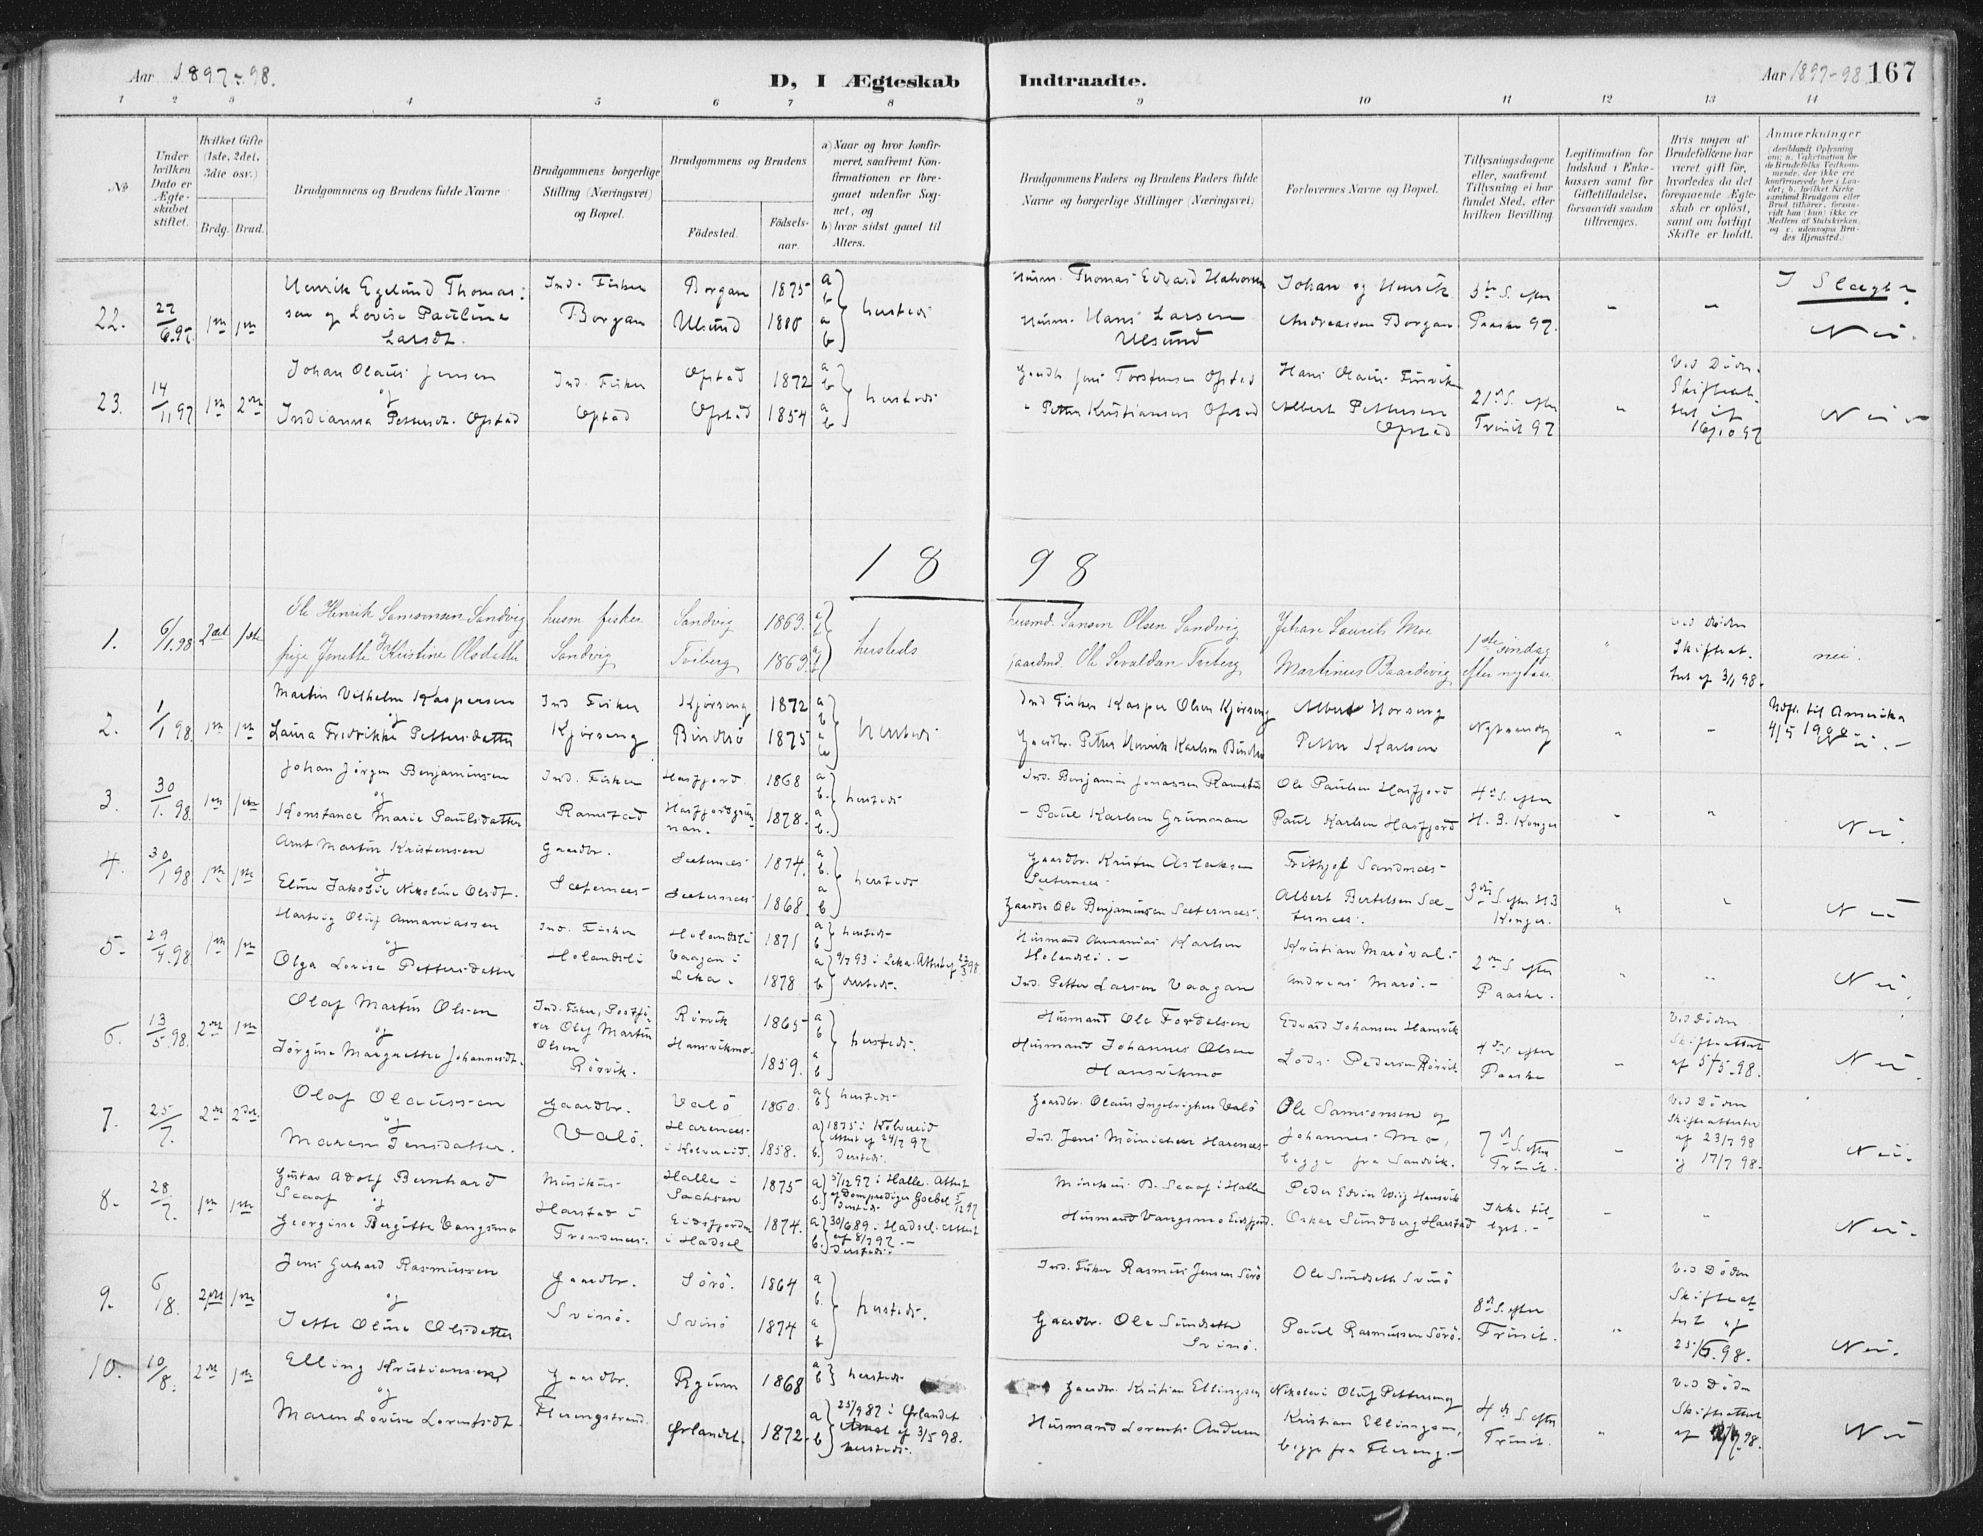 Aar 1897-98.
D, I Ægteskab Indtraadte.
Aar 1897-98 167
1 2 3 4 5 6 7 8 9 10 11 12 13 14
No
Under hvilken Dato er Ægteskabet stiftet.
Hvilket Gifte (1ste, 2det, 3die osv.)
Brdg. Brud.
Brudgommens og Brudens fulde Navne
Brudgommens borgerlige Stilling (Næringsvei) og Bopæl.
Brudgommens og Brudens
Fødested. Fødselsaar.
a) Naar og hvor konfirmeret, saafremt Konfirmationen er foregaaet udenfor Sognet, og
b) hvor sidst gaaet til Alters.
Brudgommens Faders og Brudens Faders fulde Navne og borgerlige Stillinger (Næringsvei)
Forlovernes Navne og Bopæl.
Tillysningsdagene eller, saafremt Tillysning ei har fundet Sted, efter hvilken Bevilling.
Legitimation for Indskud i Enkekassen samt for Giftetilladelse, forsaavidt saadan tiltrænges.
Hvis nogen af Brudefolkene har været gift før, hvorledes da det foregaaende Ægteskab er opløst, samt om lovligt Skifte er holdt.
Anmærkninger
22. 27/6.97 1ste 1ste Henrik Egelund Thomassen og Lovise Pauline Larsdt.
Ind. Fisker Borgan
Borgan 1875 a b
Ulsund 1880 a b hersteds
Husm. Thomas Edvard Halvorsen
Husm. Hans Larsen Ulsund
Johan og Henrik Andreassen Borgan
3die S. efter Paaske 97.
" "
I Slægt?
Nei.
23. 14/11 97 1ste 2den Johan Olaus Jensen og Indianna Pettersdt. Opstad
Ind. Fisker Opstad
Opstad 1872 a b
Opstad 1854 a b hersteds
Gaardb. Jens Torstensen Opstad
" Petter Kristiansen Opstad
Hans Olaus Finsvik
Albert Pettersen Opstad
21de S. efter Trinit 97
"
Ved Døden. Skifteattest af 16/10 97
Nei
1898
1. 6/1.98 2det 1ste Ole Henrik Samsonsen Sandvig
pige Jonette Kristine Olsdatter
husm fisker Sandvig
Sandvig 1863. a b
Tviberg 1869. a b hersteds
husmd. Samson Olsen Sandvig
gaardmd. Ole Sevaldsen Tviberg
Johan Laurits Moe
Martinus Baardvig
1ste søndag efter nytaar
"
ved Døden Skifteattest af 3/1 98.
nei.
2. 1/1 98 1ste 1ste Martin Vilhelm Kaspersen og Laura Fredrikke Pettersdatter
Ind Fisker Kjørseng
Kjørseng 1872 a b
Bindsø 1875 a b hersteds
Ind Fisker Kasper Olsen Kjørseng
Gaardbr. Petter Henrik Karlsen Bindsø
Albert Horseng
Petter Karlsen
Nytaarsdg
" "
Udfl. til Amerika 4/5 1900
Nei.
3. 30/1. 98 1ste 1ste Johan Jørgen Benjaminsen og Konstance Marie Paulsdatter
Ind. Fisker Ramstad
Hasfjord. 1868 a b.
Hasfjordgrunnan. 1878. a b. hersteds
Ind. Benjamin Jonassen Ramstad
" Paul Karlsen Grunnan
Ole Paulsen Hasfjord
Paul Karlsen Hasfjord
4de S. efter H. 3. Konger
" "
Nei.
4. 30/1 98 1ste 1ste Arnt Martin Kristensen og Eline Jakobie Nikoline Olsdt.
Gaardbr. Sæternes
Sæternes 1874. a b.
Sæternes 1868. a b hersteds
Gaardbr. Kristen Aslaksen Sæternes.
Gaardbr Ole Benjaminsen Sæternes.
Frithjof Sandnæs
Albert Bertelsen Sæternes.
3die S efter H3 Konger.
" "
Nei
5. 29/4.98 1ste 1ste Hartvig Oluf Annaniassen og Olga Lovise Pettersdatter
Ind. Fisker Holandsli
Holandsli 1871 a b hersteds
Vaagan i Leka. 1878 a 9/7 93 i Leka. Attest af 23/3 98 b dersteds.
Husmand Annanias Karlsen Holandsli.
Ind. Petter Larsen Vaagan
Kristian Marøval
Andreas Marø.
2den S efter Paaske.
" "
Nei.
6. 13/5.98. 2den 1ste Olaf Martin Olsen og Jørgine Margrethe Johannesdt.
Ind. Fisker, Postfører Oluf Martin Olsen Rørvik.
Rørvik 1865 a b
Hansvikmo. 1859. a b hersteds.
Husmand Ole Fordelsen
Husmand Johannes Olsen Hansvikmo
Edvard Johansen Hansvik
Lods Pedersen Rørvik
4de S efter Paaske
"
Ved Døden Skifteattest af 5/5.98.
Nei.
7. 25/7. 2den 2den Olaf Olaussen og Maren Jensdatter.
Gaardbr. Valø.
Valø 1860. a b hersteds
Harenes i Kolvereid. 1858. a 1875 i Kolvereid Attest af 24/7 97 b. dersteds.
Gaardbr. Olaus Ingebrigtsen Valø
Ind. Jens Møinichen Harenes
Ole Samsonsen og Johannes Mo, begge fra Sandvik.
7de S. efter Trinit.
"
Ved Døden Skifteattester af 23/7 98 og 17/7 98.
Nei.
8. 28/7. 1ste 1ste Gustav Adolf Bernhard Scaaf og Georgine Bergitte Vangsmo
Musikus Harstad i Trondenes.
Halle i Sachsen 1875 a 5/12 97 i Halle. Attest af Domprediger Goebel 5/12 97 b. dersteds
Eidsfjorden i Hadsel 1874. a 30/6 89 i Hadsel. Attest af 8/7 97. b. dersteds.
Musikus B. Scaaf i Halle
Husmand Vangsmo Eidsfjord.
Peder Edvin Wiig Hansvik
Oskar Sundberg Harstad
Ikke tillyst.
" "
Nei.
9. 6/8. 2den 1ste Jens Gerhard Rasmussen og Jette Oline Olsdatter
Gaardbr. Svinø.
Sørø. 1864 a b.
Svinø 1874 a b hersteds.
Ind. Fisker Rasmus Jensen Sørø
Gaardbr. Ole Sundseth Svinø.
Ole Sundseth Svinø
Paul Rasmussen Sørø.
8de S. efter Trinit.
"
Ved Døden Skifteattest af 25/6.98.
Nei.
10. 10/8. 2den 1ste Elling Kristiansen og Maren Lovise Lorentsdt.
Gaardbr. Flerengstrand.
Ryum 1868 a b hersteds
Ørlandet. 1872. a 25/9 87 i Ørlandet Attest af 3/5 98. b hersteds.
Gaardbr. Kristian Ellingsen
Husmand Lorents Andersen
Nikolai Oluf Pettersen og Kristian Ellingsen, begge fra Flereng.
4de S. efter Trinit.
"
Ved Døden Skifteattest af 98.
Nei